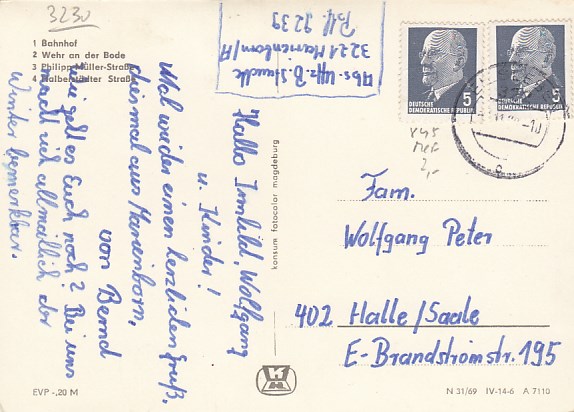 3230
1 Bahnhof
2 Wehr an der Bode
3 Philipp-Müller-Straße
4 Halberstädter Straße
Abs. Uffz. B.
3221 Marienborn/A
PSF 3239
Hallo Irmhild, Wolfgang
u. Kinder!
Mal wieder einen herzlichen Gruß,
diesmal aus Marienborn,
von Bernd
Wie geht es Euch noch? Bei uns
macht sich allmählich der
Winter bemerkbar.
konsum fotocolor magdeburg
5
DEUTSCHE
DEMOKRATISCHE REPUBLIK
5
DEUTSCHE
DEMOKRATISCHE REPUBLIK
2,-
Fam.
Wolfgang Peter
402 Halle/Saale
E-Brandströmstr. 195
EVP -,20 M
N 31/69 IV-14-6 A 7110